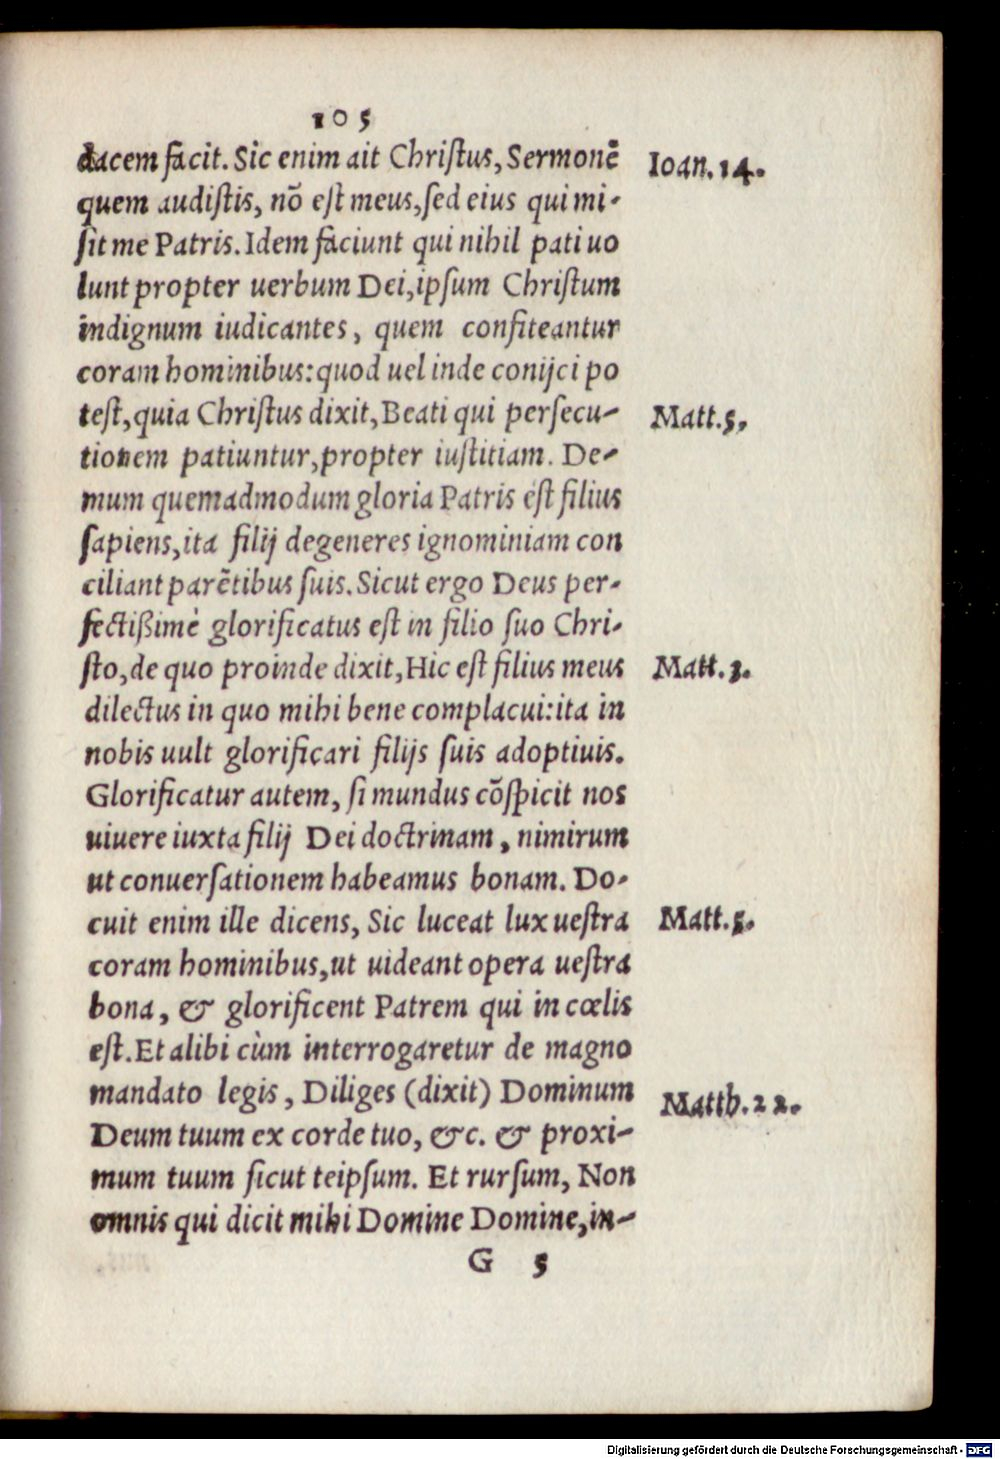 105
dacem facit. Sic enim ait Christus, Sermonē
Ioan. 14.
quem audistis, nō est meus, sed eius qui mi-
sit me Patris. Idem faciunt qui nihil pati uo
lunt propter uerbum Dei, ipsum Christum
indignum iudicantes, quem confiteantur
coram hominibus: quod uel inde conijci po
test, quia Christus dixit, Beati qui persecu-
Matt. 5.
tionem patiuntur, propter iustitiam. De-
mum quemadmodum gloria Patris est filius
sapiens, ita filij degeneres ignominiam con
ciliant parētibus suis. Sicut ergo Deus per-
fectißimè glorificatus est in filio suo Chri-
sto, de quo proinde dixit, Hic est filius meus
Matt. 3.
dilectus in quo mihi bene complacui: ita in
nobis uult glorificari filijs suis adoptiuis.
Glorificatur autem, si mundus cōspicit nos
uiuere iuxta filij Dei doctrinam, nimirum
ut conuersationem habeamus bonam. Do-
cuit enim ille dicens, Sic luceat lux uestra
Matt. 5.
coram hominibus, ut uideant opera uestra
bona, & glorificent Patrem qui in cœlis
est. Et alibi cùm interrogaretur de magno
mandato legis, Diliges (dixit) Dominum
Matth. 22.
Deum tuum ex corde tuo, &c. & proxi-
mum tuum sicut teipsum. Et rursum, Non
omnis qui dicit mihi Domine Domine, in-
G 5
Digitalisierung gefördert durch die Deutsche Forschungsgemeinschaft - DFG